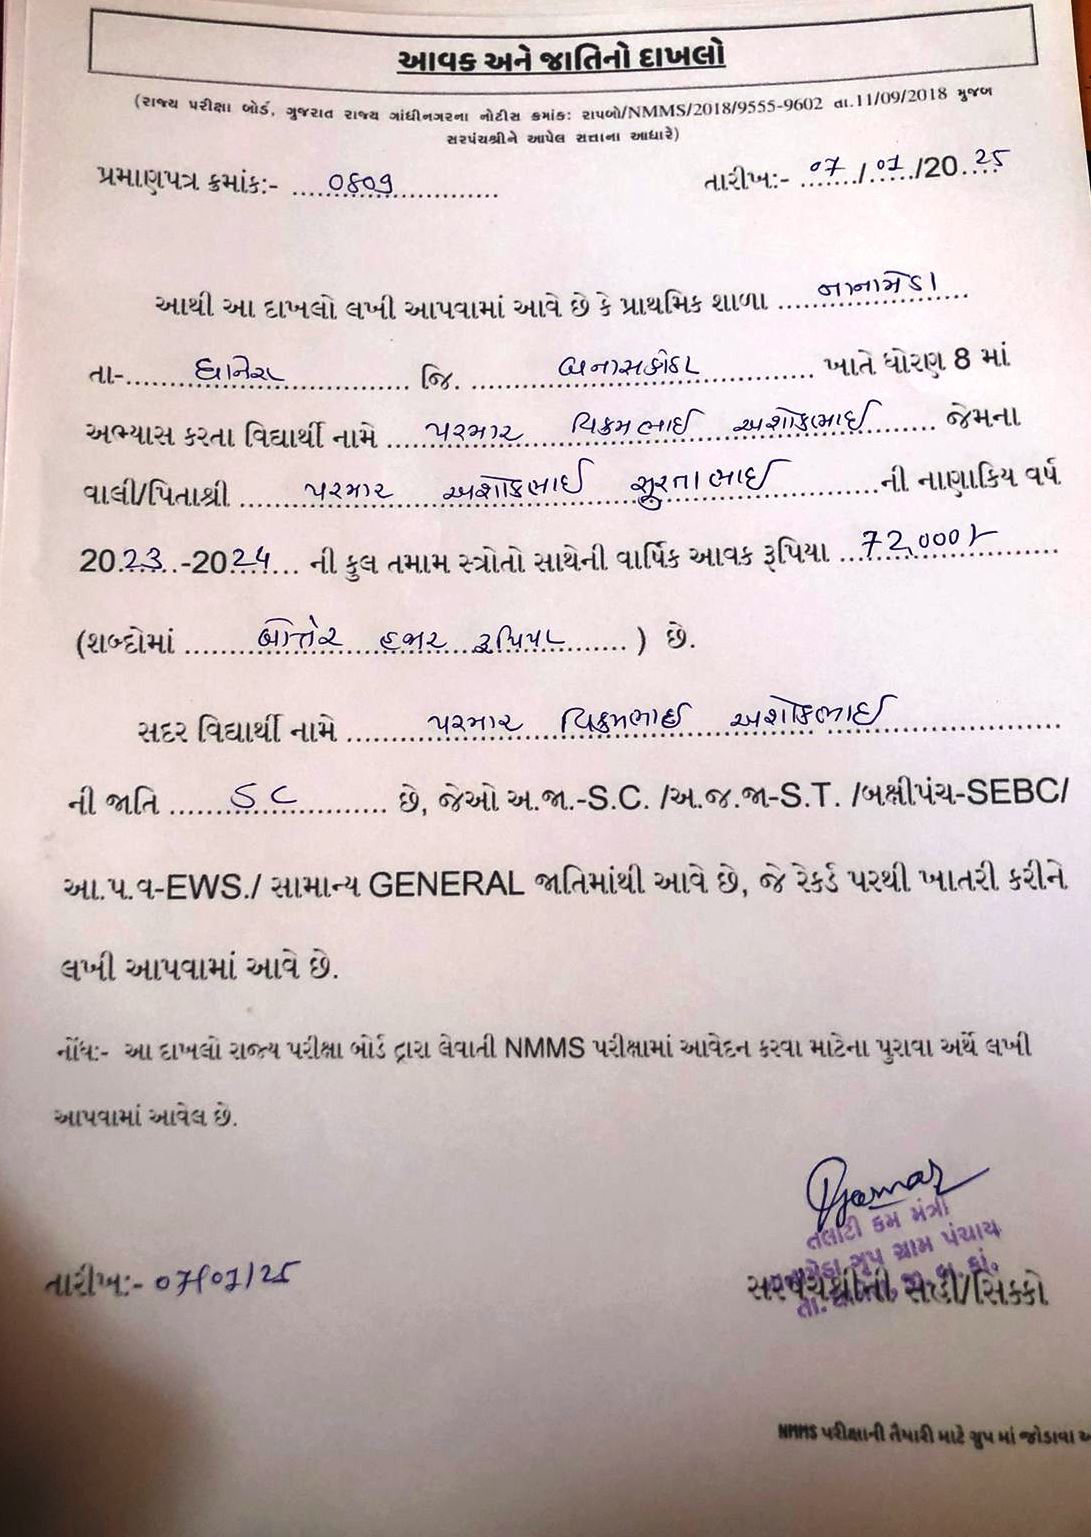 આવક અને જાતિનો દાખલો
(રાજ્ય પરીક્ષા બોર્ડ, ગુજરાત રાજ્ય ગાંધીનગરના નોટીસ ક્રમાંક: રાપબો/NMMS/2018/9555-9602 તા.11/09/2018 મુજબ
સરપંચશ્રીને આપેલ સત્તાના આધારે)
પ્રમાણપત્ર ક્રમાંક:- ....0809.... તારીખ:- 07/01/2025
આથી આ દાખલો લખી આપવામાં આવે છે કે પ્રાથમિક શાળા ...નાનામેડા...
તા-....ધાનેરા.... જિ. ....બનાસકાંઠા.... ખાતે ધોરણ 8 માં
અભ્યાસ કરતા વિદ્યાર્થી નામે ...પરમાર વિક્રમભાઈ અશોકભાઈ... જેમના
વાલી/પિતાશ્રી ...પરમાર અશોકભાઈ સૂરતાભાઈ...ની નાણાકિય વર્ષ
2023-2024... ની કુલ તમામ સ્ત્રોતો સાથેની વાર્ષિક આવક રૂપિયા ...72,000/-...
(શબ્દોમાં ...બોતેર હજાર રૂપિયા...) છે.
સદર વિદ્યાર્થી નામે ...પરમાર વિક્રમભાઈ અશોકભાઈ...
ની જાતિ ...SC... છે, જેઓ અ.જા.-S.C. /અ.જ.જા-S.T. /બક્ષીપંચ-SEBC/
આ.પ.વ-EWS./ સામાન્ય GENERAL જાતિમાંથી આવે છે, જે રેકર્ડ પરથી ખાતરી કરીને
લખી આપવામાં આવે છે.
નોંધ:- આ દાખલો રાજ્ય પરીક્ષા બોર્ડ દ્વારા લેવાતી NMMS પરીક્ષામાં આવેદન કરવા માટેના પુરાવા અર્થે લખી
આપવામાં આવેલ છે.
તલાટી કમ મંત્રી
ગ્રુપ ગ્રામ પંચાય
તારીખ:- 07/01/25 સરપંચશ્રીની સહી/સિક્કો
NMMS પરીક્ષાની તૈયારી માટે ગ્રુપ માં જોડાવા